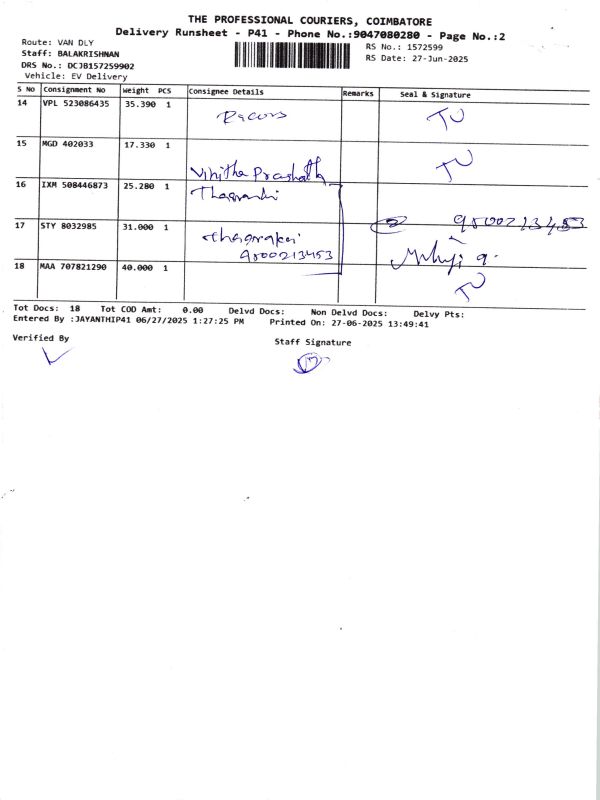 THE PROFESSIONAL COURIERS, COIMBATORE
Delivery Runsheet - P41 - Phone No.:9047080280 - Page No.:2
Route: VAN DLY
RS No.: 1572599
Staff: BALAKRISHNAN
RS Date: 27-Jun-2025
DRS No.: DCJB157259902
Vehicle: EV Delivery
S No Consignment No Weight PCS Consignee Details Remarks Seal & Signature
14 VPL 523086435 35.390 1
15 MGD 402033 17.330 1
16 IXM 508446873 25.280 1
17 STY 8032985 31.000 1 9500213453
9500213453
18 MAA 707821290 40.000 1
Tot Docs: 18 Tot COD Amt: 0.00 Delvd Docs: Non Delvd Docs: Delvy Pts:
Entered By :JAYANTHIP41 06/27/2025 1:27:25 PM Printed On: 27-06-2025 13:49:41
Verified By
Staff Signature